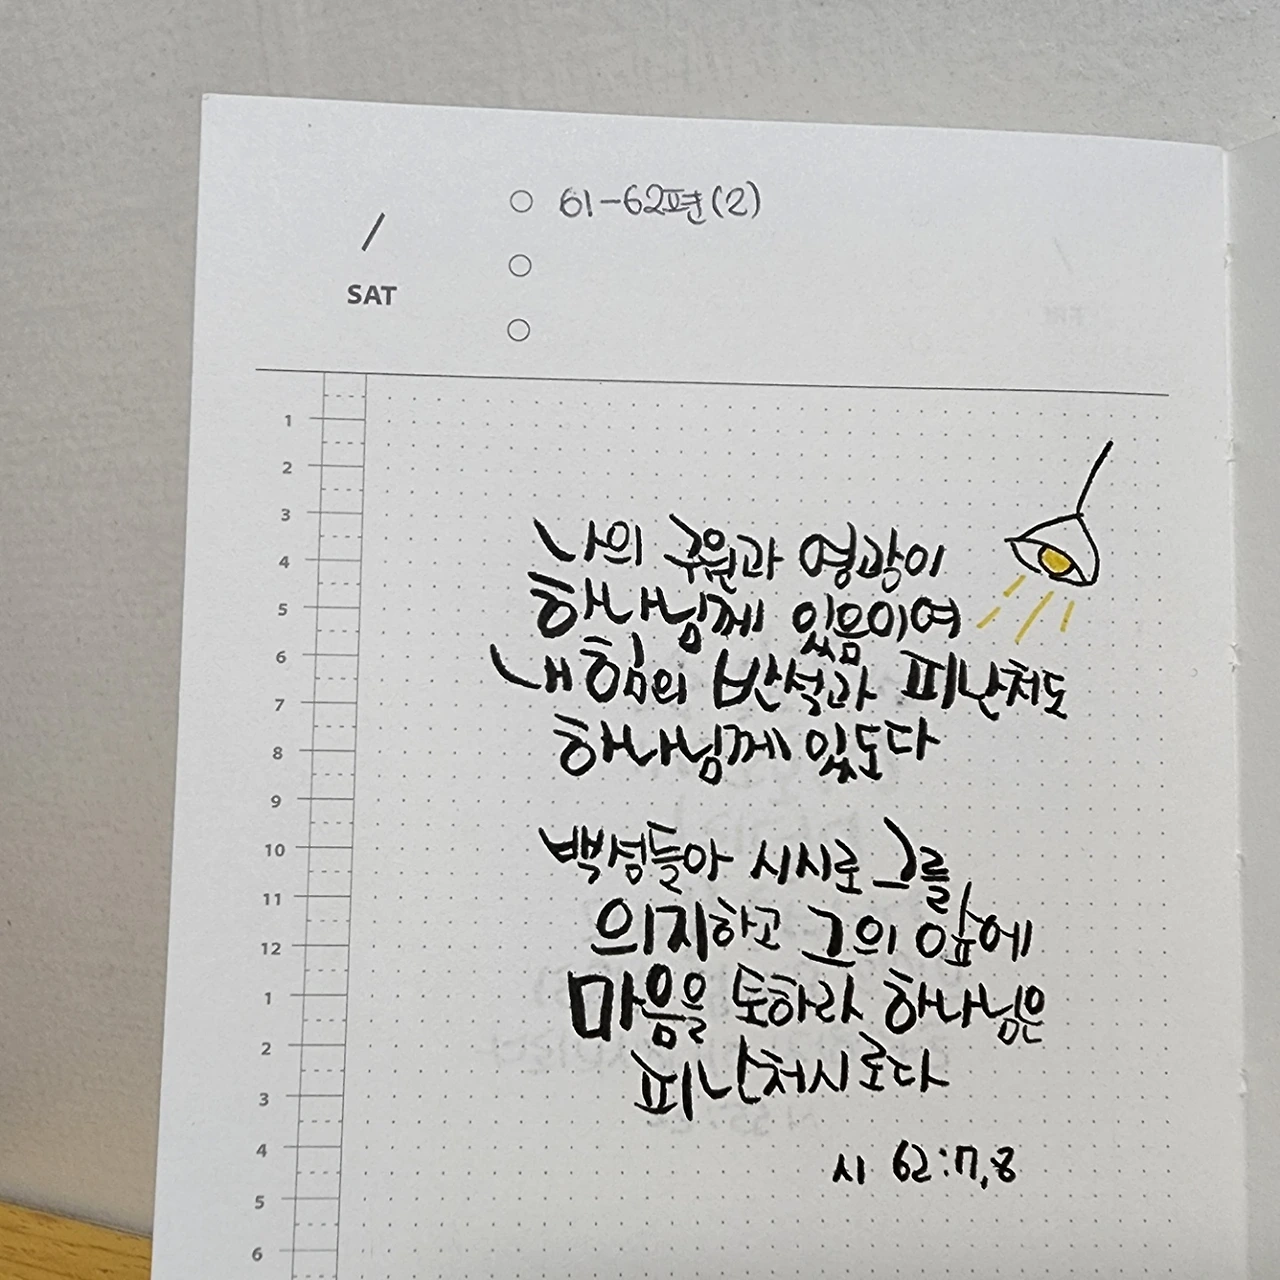 61-62편(2)
/
SAT
1
2
3
4
5
6
7
8
9
10
11
12
1
2
3
4
5
6
나의 구원과 영광이
하나님께 있음이여
내 힘의 반석과 피난처도
하나님께 있도다
백성들아 시시로 그를
의지하고 그의 앞에
마음을 토하라 하나님은
피난처시로다
시 62:7,8